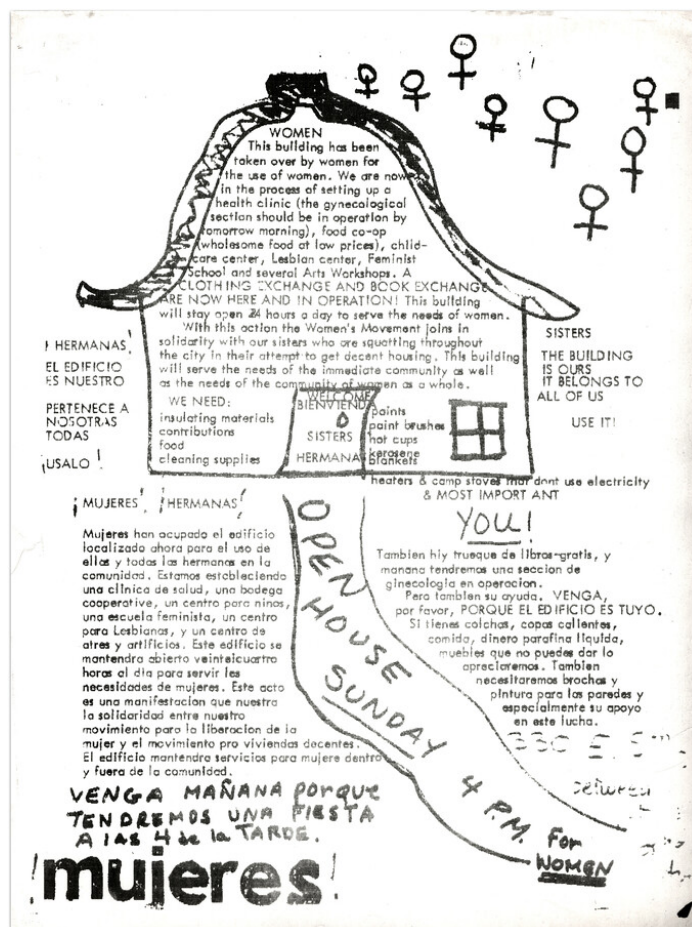 WOMEN
This building has been
taken over by women for
the use of women. We are now
in the process of setting up a
health clinic (the gynecological
section should be in operation by
tomorrow morning), food co-op
(wholesome food at low prices), child-
care center, Lesbian center, Feminist
School and several Arts Workshops. A
CLOTHING EXCHANGE AND BOOK EXCHANGE
ARE NOW HERE AND IN OPERATION! This building
will stay open 24 hours a day to serve the needs of women.
With this action the Women's Movement joins in
solidarity with our sisters who are squatting throughout
the city in their attempt to get decent housing. This building
will serve the needs of the immediate community as well
as the needs of the community of women as a whole.
¡HERMANAS!
EL EDIFICIO
ES NUESTRO
PERTENECE A
NOSOTRAS
TODAS
¡USALO!
SISTERS
THE BUILDING
IS OURS
IT BELONGS TO
ALL OF US
USE IT!
WE NEED:
insulating materials
contributions
food
cleaning supplies
WELCOME
BIENVIENDA
SISTERS
HERMANA
paints
paint brushes
hot cups
kerosene
blankets
heaters & camp stoves that dont use electricity
& MOST IMPORT ANT
YOU!
¡MUJERES! ¡HERMANAS!
Mujeres han ocupado el edificio
localizado ahora para el uso de
ellas y todas las hermanas en la
comunidad. Estamos estableciendo
una clinica de salud, una bodega
cooperative, un centro para ninos,
una escuela feminista, un centro
para Lesbianas, y un centro de
atres y artificios. Este edificio se
mantendra abierto veinteicuartro
horas al dia para servir les
necesidades de mujeres. Este acto
es una manifestacion que nuestra
la solidaridad entre nuestro
movimiento para la liberacion de la
mujer y el movimiento pro viviendas decentes.
El edificio mantendra servicios para mujere dentro
y fuera de la comunidad.
VENGA MAÑANA PorQUE
TENDREMOS UNA FIESTA
A lAS 4 de la TARDE.
¡mujeres!
OPEN
HOUSE
SUNDAY
4 P.M. For
WOMEN
Tambien hiy trueque de libros-gratis, y
manana tendremos una seccion de
ginecologia en operacion.
Pero tambien su ayuda. VENGA,
por favor, PORQUE EL EDIFICIO ES TUYO.
Si tienes colchas, copas calientes,
comida, dinero parafina liquida,
muebles que no puedes dar lo
apreciaremos. Tambien
necesitaremos brochas y
pintura para las paredes y
especialmente su apoyo
en este lucha.
between